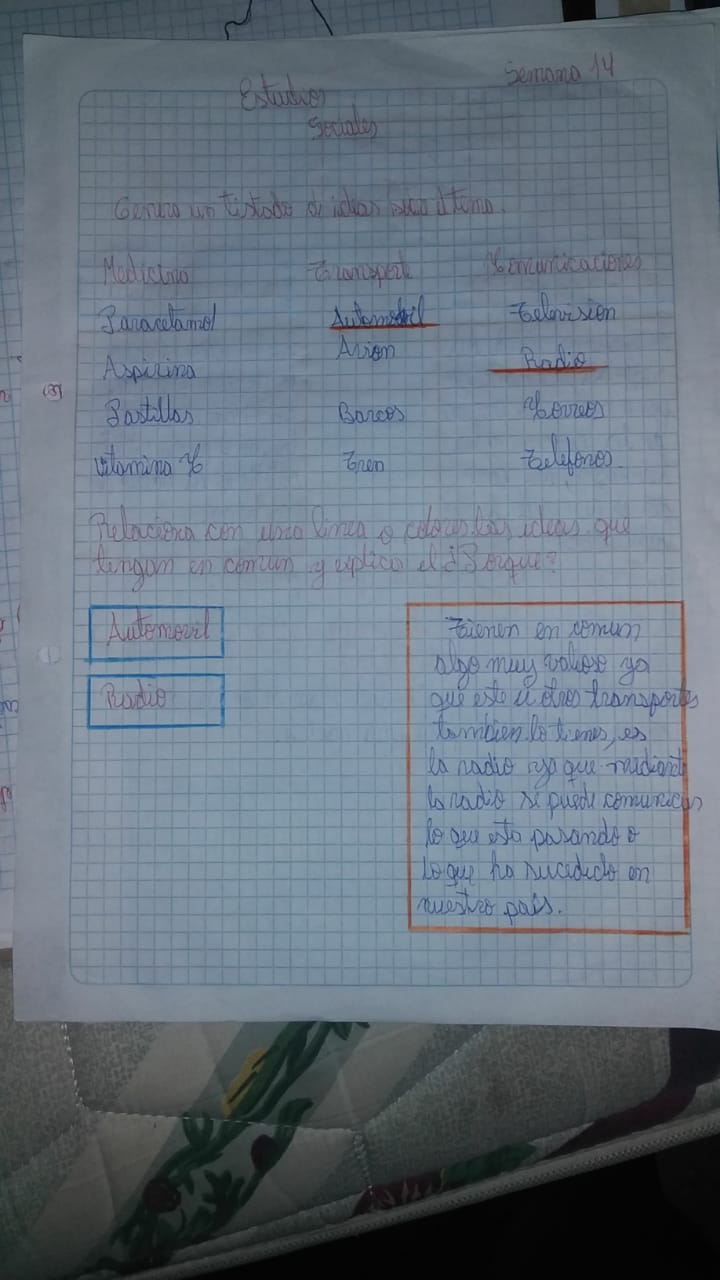 Semana 14
Estudios
Sociales
Genero un listado de ideas sobre el tema.
Medicina Transport Comunicaciones
Paracetamol Automovil Television
Aspirina Avion Radio
Pastillas Barcos Correos
Vitamina C Tren Telefonos
Relaciona con una linea o colores las ideas que
tengan en comun y explico el ¿Porque?
Automovil
Radio
Tienen en comun
algo muy valioso ya
que este u otros transportes
tambien lo tienes, es
la radio ya que mediant
la radio se puede comunicas
lo que esta pasando o
lo que ha sucedido en
nuestro país.